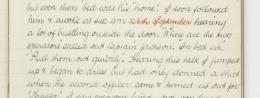 but even then bed was his "home". I soon followed
him & awoke at six am 26th September hearing
a lot of bustling outside the door. "Where are the two
called out Captain in bed sir."
"Pull them out quickly." Hearing this talk I jumped
up & began to dress but had only donned a shirt
when the second officer came & turned us out for